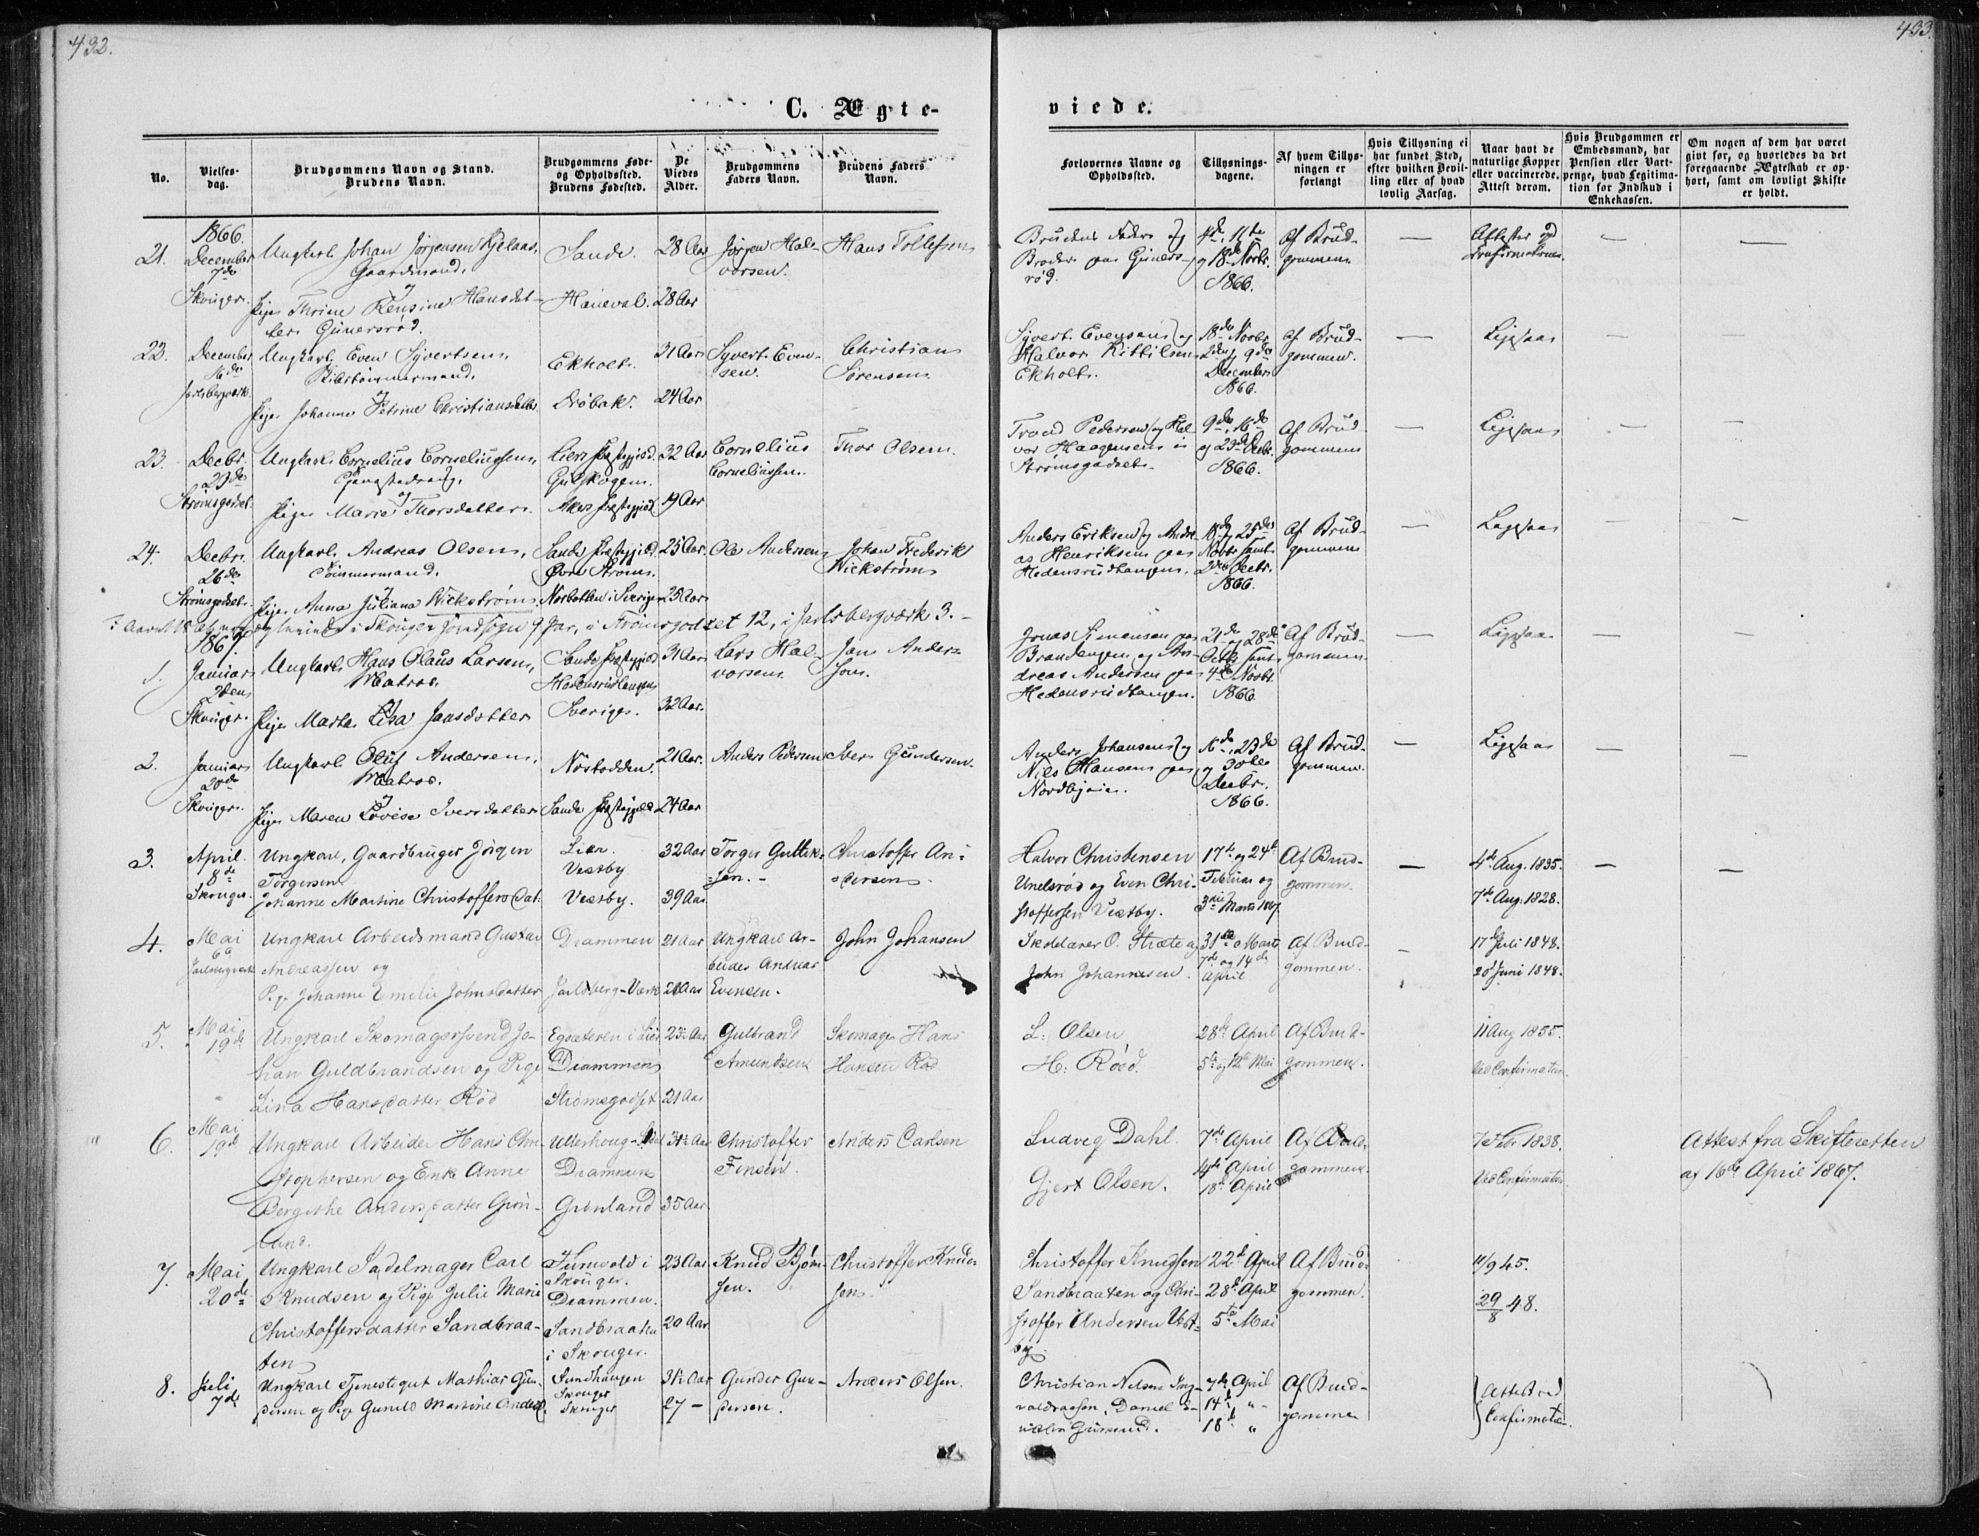 432.
433.
C. Ægte-
viede.
No.
Vielses-
dag.
Brudgommens Navn og Stand.
Brudens Navn.
Brudgommens Føde-
og Opholdssted.
Brudens Fødested.
De
Viedes
Alder.
Brudgommens
Faders Navn.
Brudens Faders
Navn.
Forlovernes Navne og
Opholdssted.
Tillysnings-
dagene.
Af hvem Tillys-
ningen er
forlangt
Hvis Tillysning ei
har fundet Sted,
efter hvilken Bevil-
ling eller af hvad
lovlig Aarsag.
Naar havt de
naturlige Kopper
eller vaccinerede.
Attest derom.
Hvis Brudgommen er
Embedsmand, har
Pension eller Vart-
penge, hvad Legitima-
tion for Indskud i
Enkekassen.
Om nogen af dem har været
givt før, og hvorledes da det
foregaaende Ægteskab er op-
hørt, samt om lovligt Skifte
er holdt.
1866.
21. December 7de Skouger.
Ungkarl Johan Jørgensen
Gaardmand,
og
Pige Thrine Hansdat-
ter Gunersrød.
Sande
28 Aar
28 Aar
Jørgen Hal-
vorsen.
Hans Tollefsen
Brudens Fader og
Broder paa Guners-
rød.
4de, 11te
og 18de Novbr.
1866.
af Brud-
gommen
Attester ved
Confirmationen.
22. December 16de Jarlsbergværk.
Ungkarl Even Syvertsen,
og
Pige Johanne Petrine Christiansdatter
Ekholt.
Drøbak.
31 Aar
24 Aar
Syvert Even-
sen.
Christian
Sørensen
Syvert Evensen og
Halvor Kittilsen
Ekholt.
18de Novbr.
2den og 9de
December
1866.
af Brud-
gommen.
Ligesaa
23. Decbr. 23de Strømsgodset.
Ungkarl Cornelius Corneliussen,
og
Pige Marie Thorsdatter.
Liers Præstegjeld.
Gulskogen.
Akers Præstegjeld
32 Aar
19 Aar
Cornelius
Corneliussen.
Thor Olsen.
Trond Pedersen og Hal-
vor Haagensen i
Strømsgodset.
9de, 16de
og 23de Decbr.
1866.
Af Brud-
gommen
Ligesaa
24. Decbr. 26de Strømsgodset.
Ungkarl Andreas Olsen,
Tømmermand.
og
Pige Anna Juliana Wickstrøm
Sande Præstegjeld.
Øvre Strøms.
Norbotten i Sverige
25 Aar.
25 Aar
Ole Andersen
Johan Frederik
Wickstrøm
Anders Eriksen og Andre-
as Henriksen paa
Hedensrudtangen.
18de og 25de
Novbr samt
2den Decbr.
1866.
Af Brud-
gommen
Ligesaa
i Skouger Hovedsogn 9 Par, i Strømsgodset 12, i Jarlsbergværk 3.
1867.
1. Januar 2den Skouger.
Ungkarl Hans Olaus Larsen,
Matros.
og
Pige Marta Lisa Jansdotter
Sande Præstegjeld
Hedensrudtangen
Sverige.
31 Aar
32 Aar.
Lars Hal-
vorsen
Jan Anders-
son.
Jonas Simensen paa
Brandengen og An-
dreas Andersen paa
Hedensrudtangen.
21de og 28de
Octbr samt
4de Novbr
1866
Af Brud-
gommen
Ligesaa
2. Januar 20de Skouger.
Ungkarl Oluf Andersen,
Matros.
og
Pige Maren Lovise Iversdatter
Nøstodden.
Sande Præstegjeld
21 Aar.
24 Aar
Anders Pedersen
Iver Gundersen.
Anders Johansen og
Nils Hansen paa
Nordbyeie.
16de, 23de
og 30te
Decbr.
1866.
Af Brud-
gommen.
Ligesaa
3. April 8de Skouger.
Ungkarl, Gaardbruger Jørgen
Torgersen
Johanne Martine Christoffersdat.
Lier.
Vestby
Vestby.
32 Aar
39 Aar.
Torger Guttik-
sen.
Christoffer An-
dersen.
Halvor Christensen
Unelsrød og Even Chri-
stoffersen Vestby.
17de og 24de
Februar og
3die Marts 1867.
Af Brud-
gommen.
4de Aug. 1835.
7de Aug. 1828.
4. Mai 6te Jarlsbergværk
Ungkarl Arbeidsmand Gustav
Andreassen og
Pige Johanne Emilie Johnsdatter
Drammen
Jarlsberg-Værk
21 Aar
21 Aar
Ungkarl Ar-
beider Andreas
Evensen.
John Johansen
O. Stræte og
John Johannesen.
31te Marts
7de og 14de
April
Af Brud-
gommen.
17de Juli 1848.
20de Juni 1848.
5. Mai 19de
Ungkarl Skomagersvend Jo-
han Guldbrandsen og Pige
Lina Hansdatter Rød
Egsæteren i Lier
Drammen
Strømsgodset
23 Aar
21 Aar
Gulbrand
Amundsen
Skomager Hans
Hansen Rød
L: Olsen
H: Röed.
28de April
5te og 12te Mai
Af Brud-
gommen.
11 Aug 1855.
Ved Confirmation
6. Mai 19de
Ungkarl Arbeider Hans Chri-
stophersen og Enke Anne
Bergithe Andersdatter Grön-
land.
Ullerhoug-Lier
Drammen
Grönland
31½ Aar
35 Aar.
Christoffer
Finsen.
Anders Carlsen
Ludvig Dahl.
Gjert Olsen.
7de April
14de April
18de April
Af Brud-
gommen
7 Febr 1838.
Ved Confirmation
Attest fra Skifteretten
af 16de April 1867.
7. Mai 20de
Ungkarl Sadelmager Carl
Knudsen og Pige Julie Marie
Christoffersdatter Sandbraa-
ten
Skouger.
Drammen.
Sandbraaten
i Skouger.
23 Aar
20 Aar
Knud Bjørn-
sen.
Christoffer Knud-
sen
Christoffer Knudsen
Sandbraaten og Chri-
stoffer Andersen Vest-
by.
22de April
28de April
5te Mai
Af Brud-
gommen.
11/9 45.
29/8 48.
8. Juli 7de
Ungkarl Tjenestegut Mathias Gun-
dersen og Pige Gunild Martine Andersd.
Sundhaugen
Skouger
Skouger
31½ Aar
27 —
Gunder Gun-
dersen.
Anders Olsen.
Christian Nielsen Ing-
valdsaasen, Daniel
7de April
14de "
18de "
Af Brud-
gommen
Attest ved
Confirmation